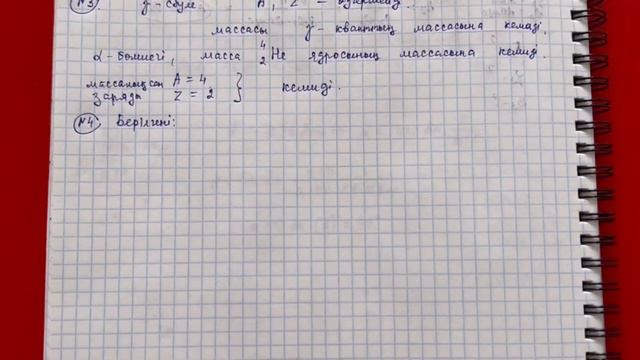 №3 γ-сәуле A, Z –
массасы γ-кванттың массасына кемиді.
α-бөлшегі, масса ⁴₂He ядросының массасына кемиді
массалық сан A = 4
заряды Z = 2 } кемиді.
№4 Берілгені: